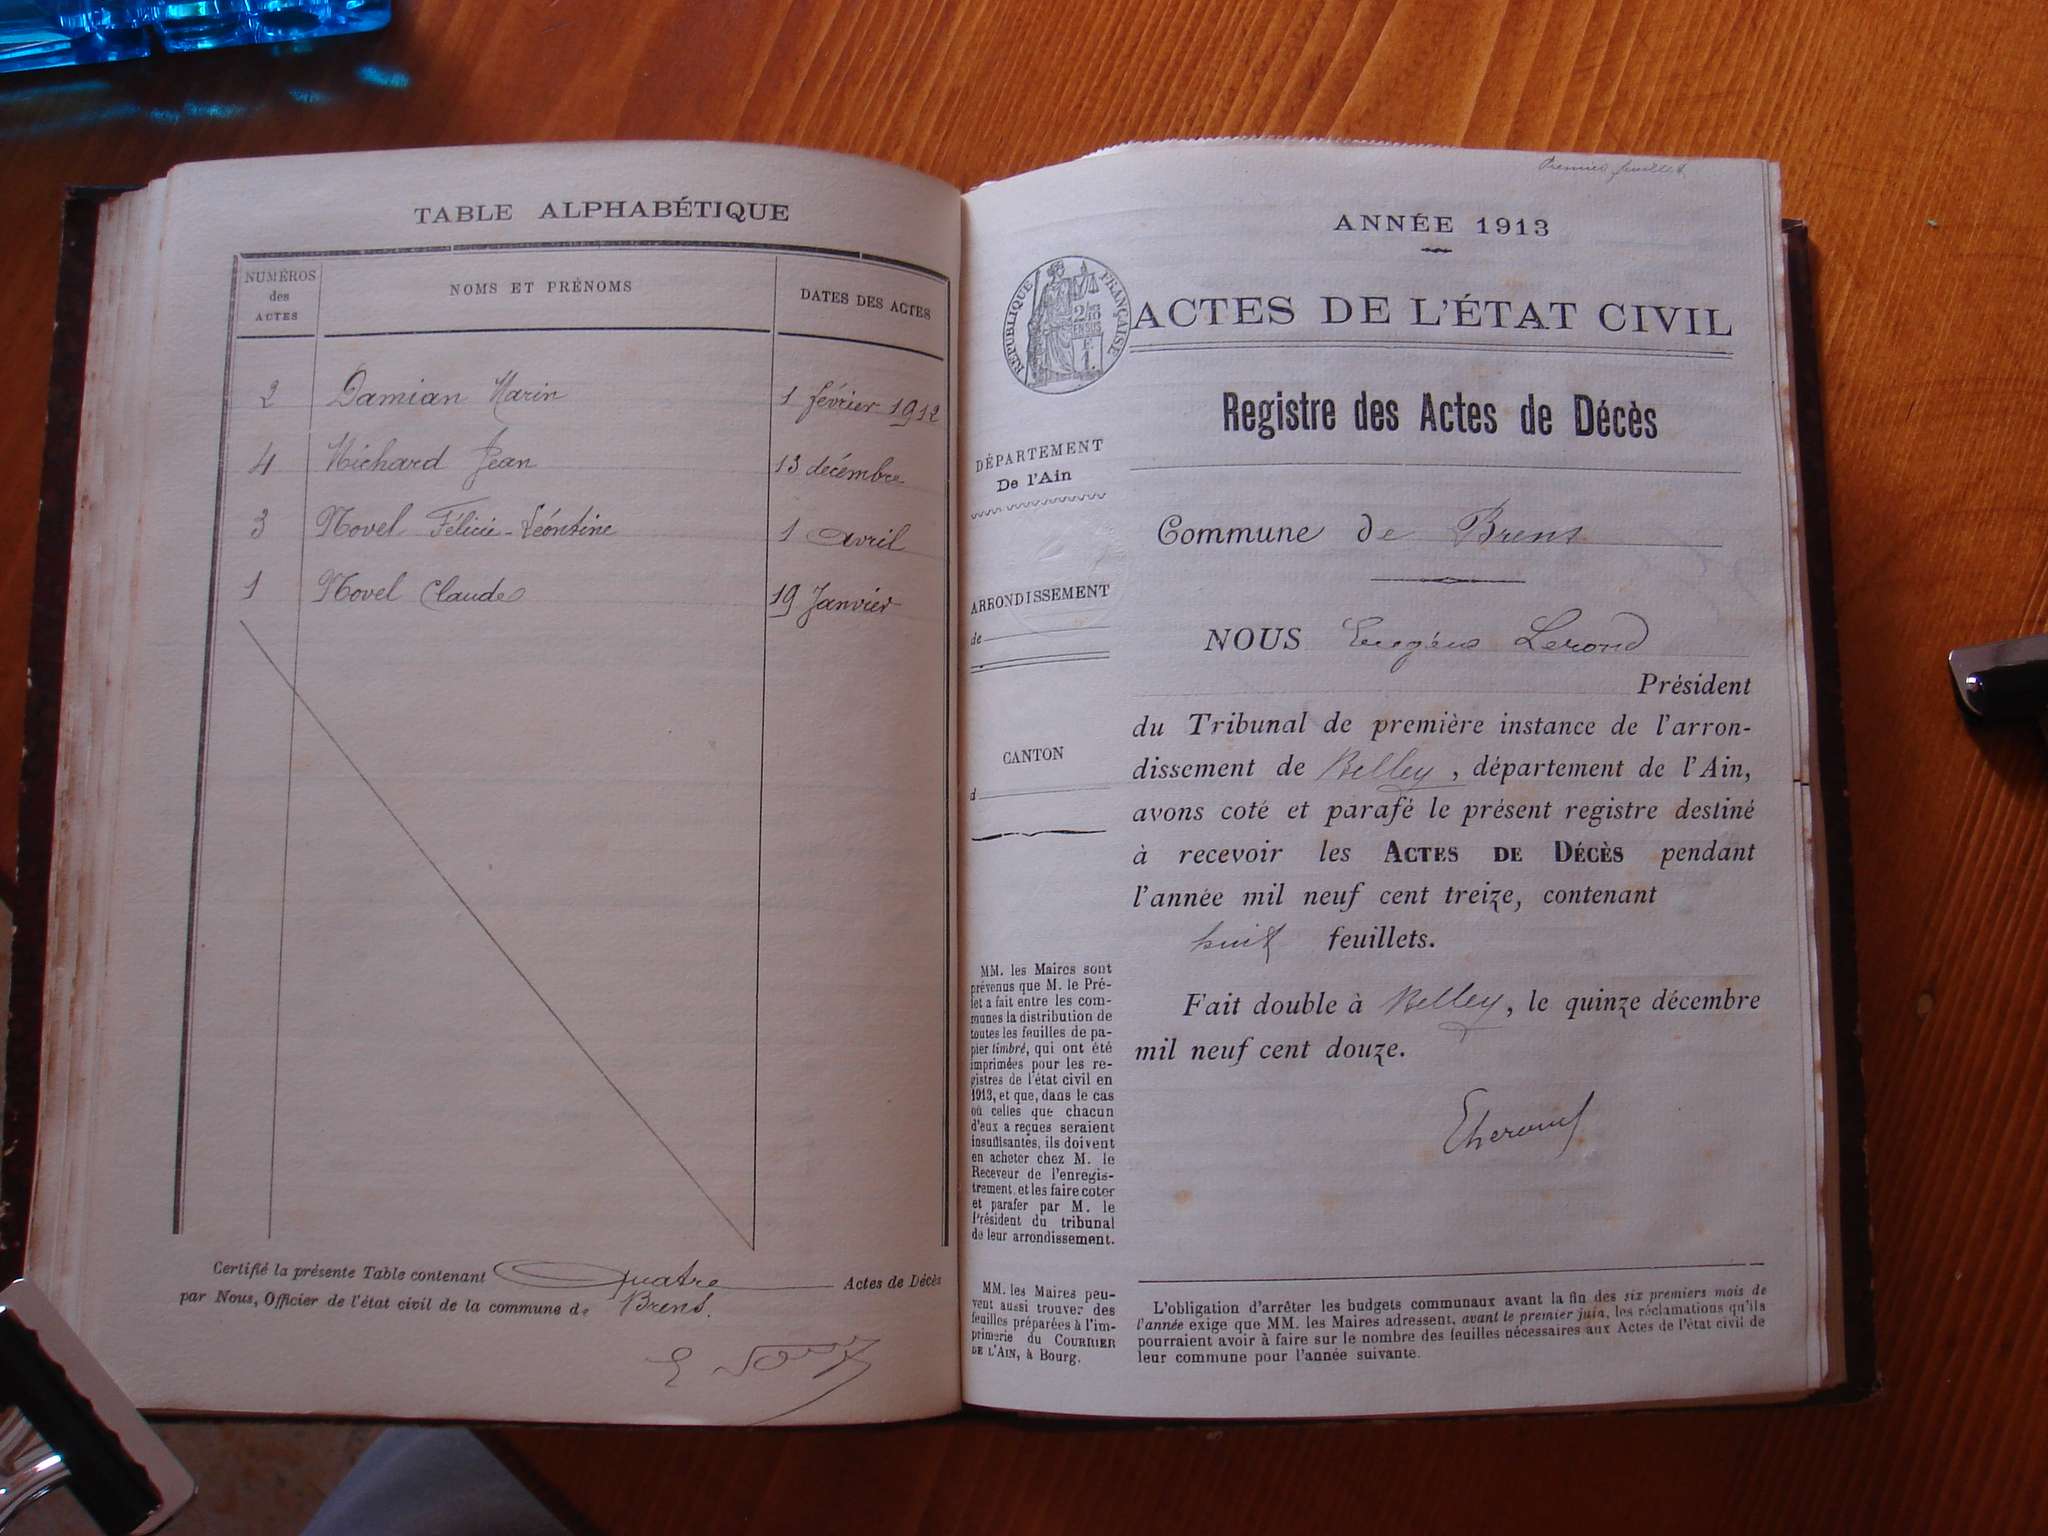 TABLE ALPHABÉTIQUE
NUMÉROS
des
ACTES
NOMS ET PRÉNOMS
DATES DES ACTES
2 Damian Marin 1 février 1912
4 Michard Jean 13 décembre
3 Novel Félicie-Léontine 1 avril
1 Novel Claude 19 Janvier
Certifié la présente Table contenant Quatre Actes de Décès
par Nous, Officier de l'état civil de la commune de Brens.
Premier feuillet
ANNÉE 1913
RÉPUBLIQUE FRANÇAISE
ACTES DE L'ÉTAT CIVIL
Registre des Actes de Décès
DÉPARTEMENT
De l'Ain
Commune de Brens
ARRONDISSEMENT
de
NOUS Eugène Lerond
Président
du Tribunal de première instance de l'arron-
dissement de Belley, département de l'Ain,
avons coté et parafé le présent registre destiné
à recevoir les ACTES DE DÉCÈS pendant
l'année mil neuf cent treize, contenant
huit feuillets.
Fait double à Belley, le quinze décembre
mil neuf cent douze.
CANTON
d
MM. les Maires sont
prévenus que M. le Pré-
fet a fait entre les com-
munes la distribution de
toutes les feuilles de pa-
pier timbré, qui ont été
imprimées pour les re-
gistres de l'état civil en
1913, et que, dans le cas
où celles que chacun
d'eux a reçues seraient
insuffisantes, ils doivent
en acheter chez M. le
Receveur de l'enregis-
trement et les faire coter
et parafer par M. le
Président du tribunal
de leur arrondissement.
MM. les Maires peu-
vent aussi trouver des
feuilles préparées à l'im-
primerie du COURRIER
DE L'AIN, à Bourg.
L'obligation d'arrêter les budgets communaux avant la fin des six premiers mois de
l'année exige que MM. les Maires adressent, avant le premier juin, les réclamations qu'ils
pourraient avoir à faire sur le nombre des feuilles nécessaires aux Actes de l'état civil de
leur commune pour l'année suivante.